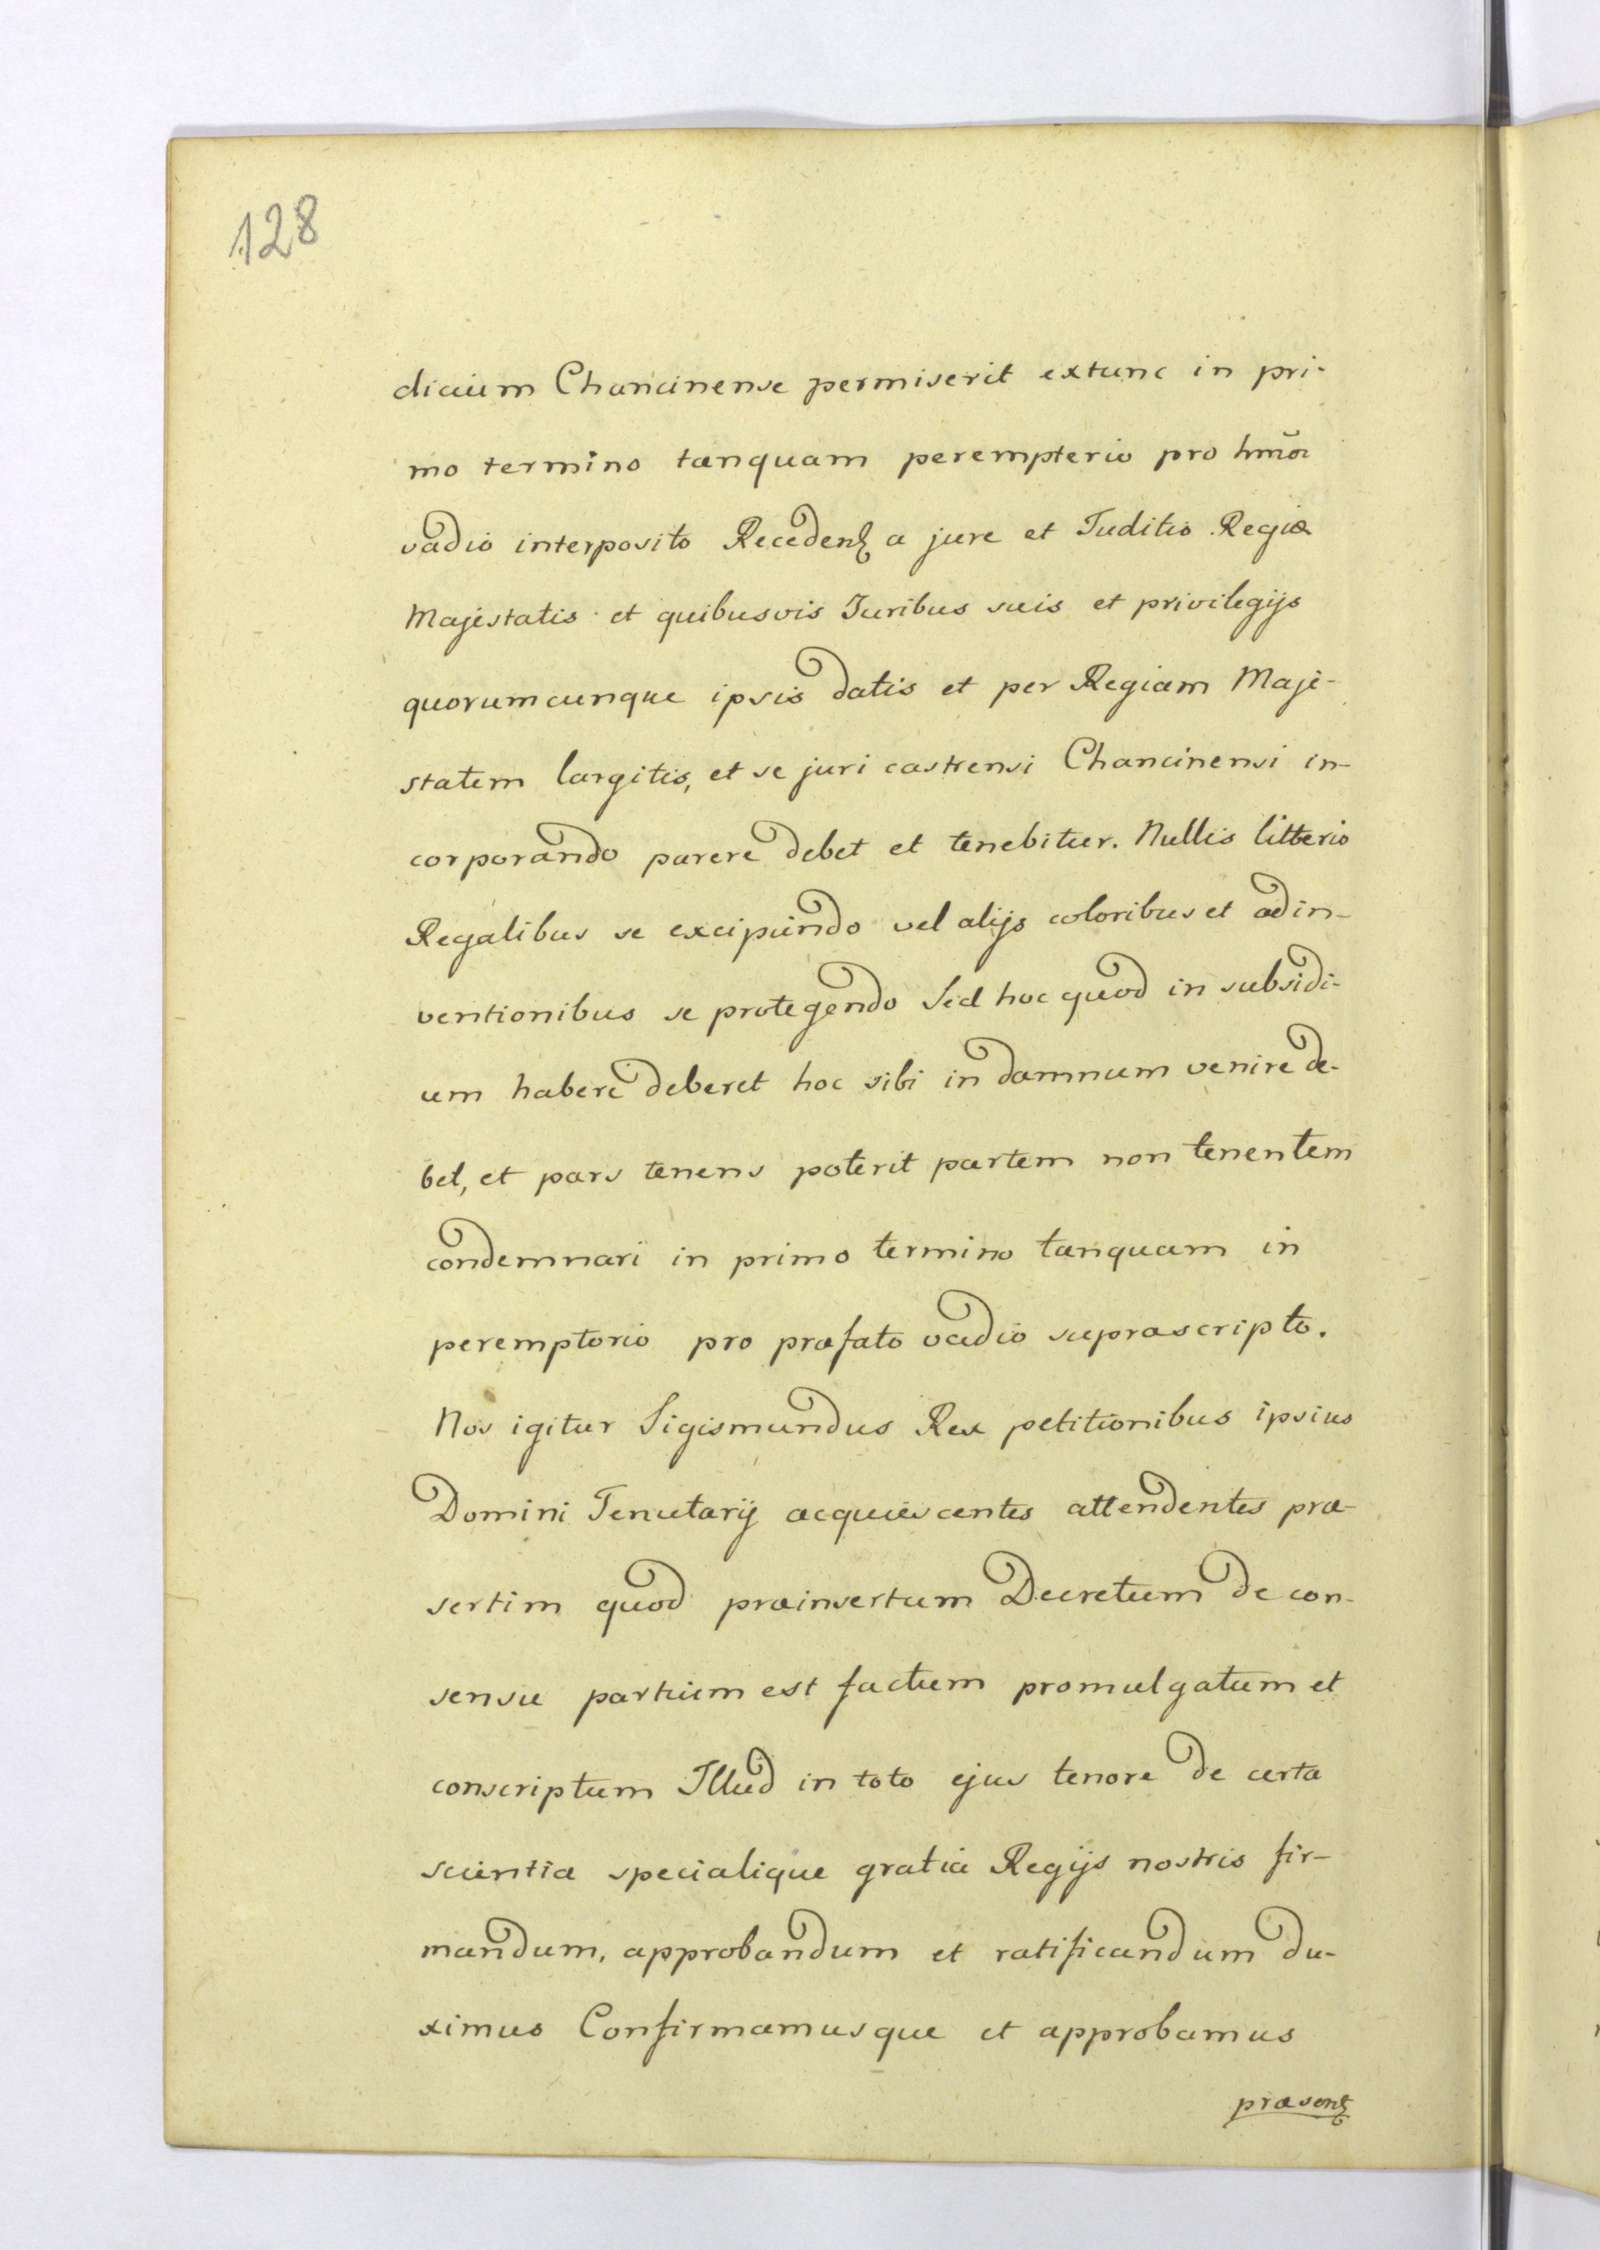 128
dicium Chancinense permiserit extunc in pri-
mo termino tanquam perempterio pro hmõi
vadio interposito Recedenʒ a jure et Juditio Regiæ
Majestatis et quibusvis Juribus suis et privilegijs
quorumcunque ipsis datis et per Regiam Maje-
statem largitis, et se juri castrensi Chancinensi in-
corporando parere debet et tenebitur. Nullis litteris
Regalibus se excipiendo vel alijs coloribus et adin-
ventionibus se protegendo Sed hoc quod in subsidi-
um habere deberet hoc sibi in damnum venire de-
bet, et pars tenens poterit partem non tenentem
condemnari in primo termino tanquam in
peremptorio pro præfato vadio suprascripto.
Nos igitur Sigismundus Rex petitionibus ipsius
Domini Tenutarij acquiescentes attendentes præ-
sertim quod præinsertum Decretum de con-
sensu partium est factum promulgatum et
conscriptum Illud in toto ejus tenore de certa
scientia specialique gratia Regijs nostris fir-
mandum, approbandum et ratificandum du-
ximus Confirmamusque et approbamus
præsenʒ